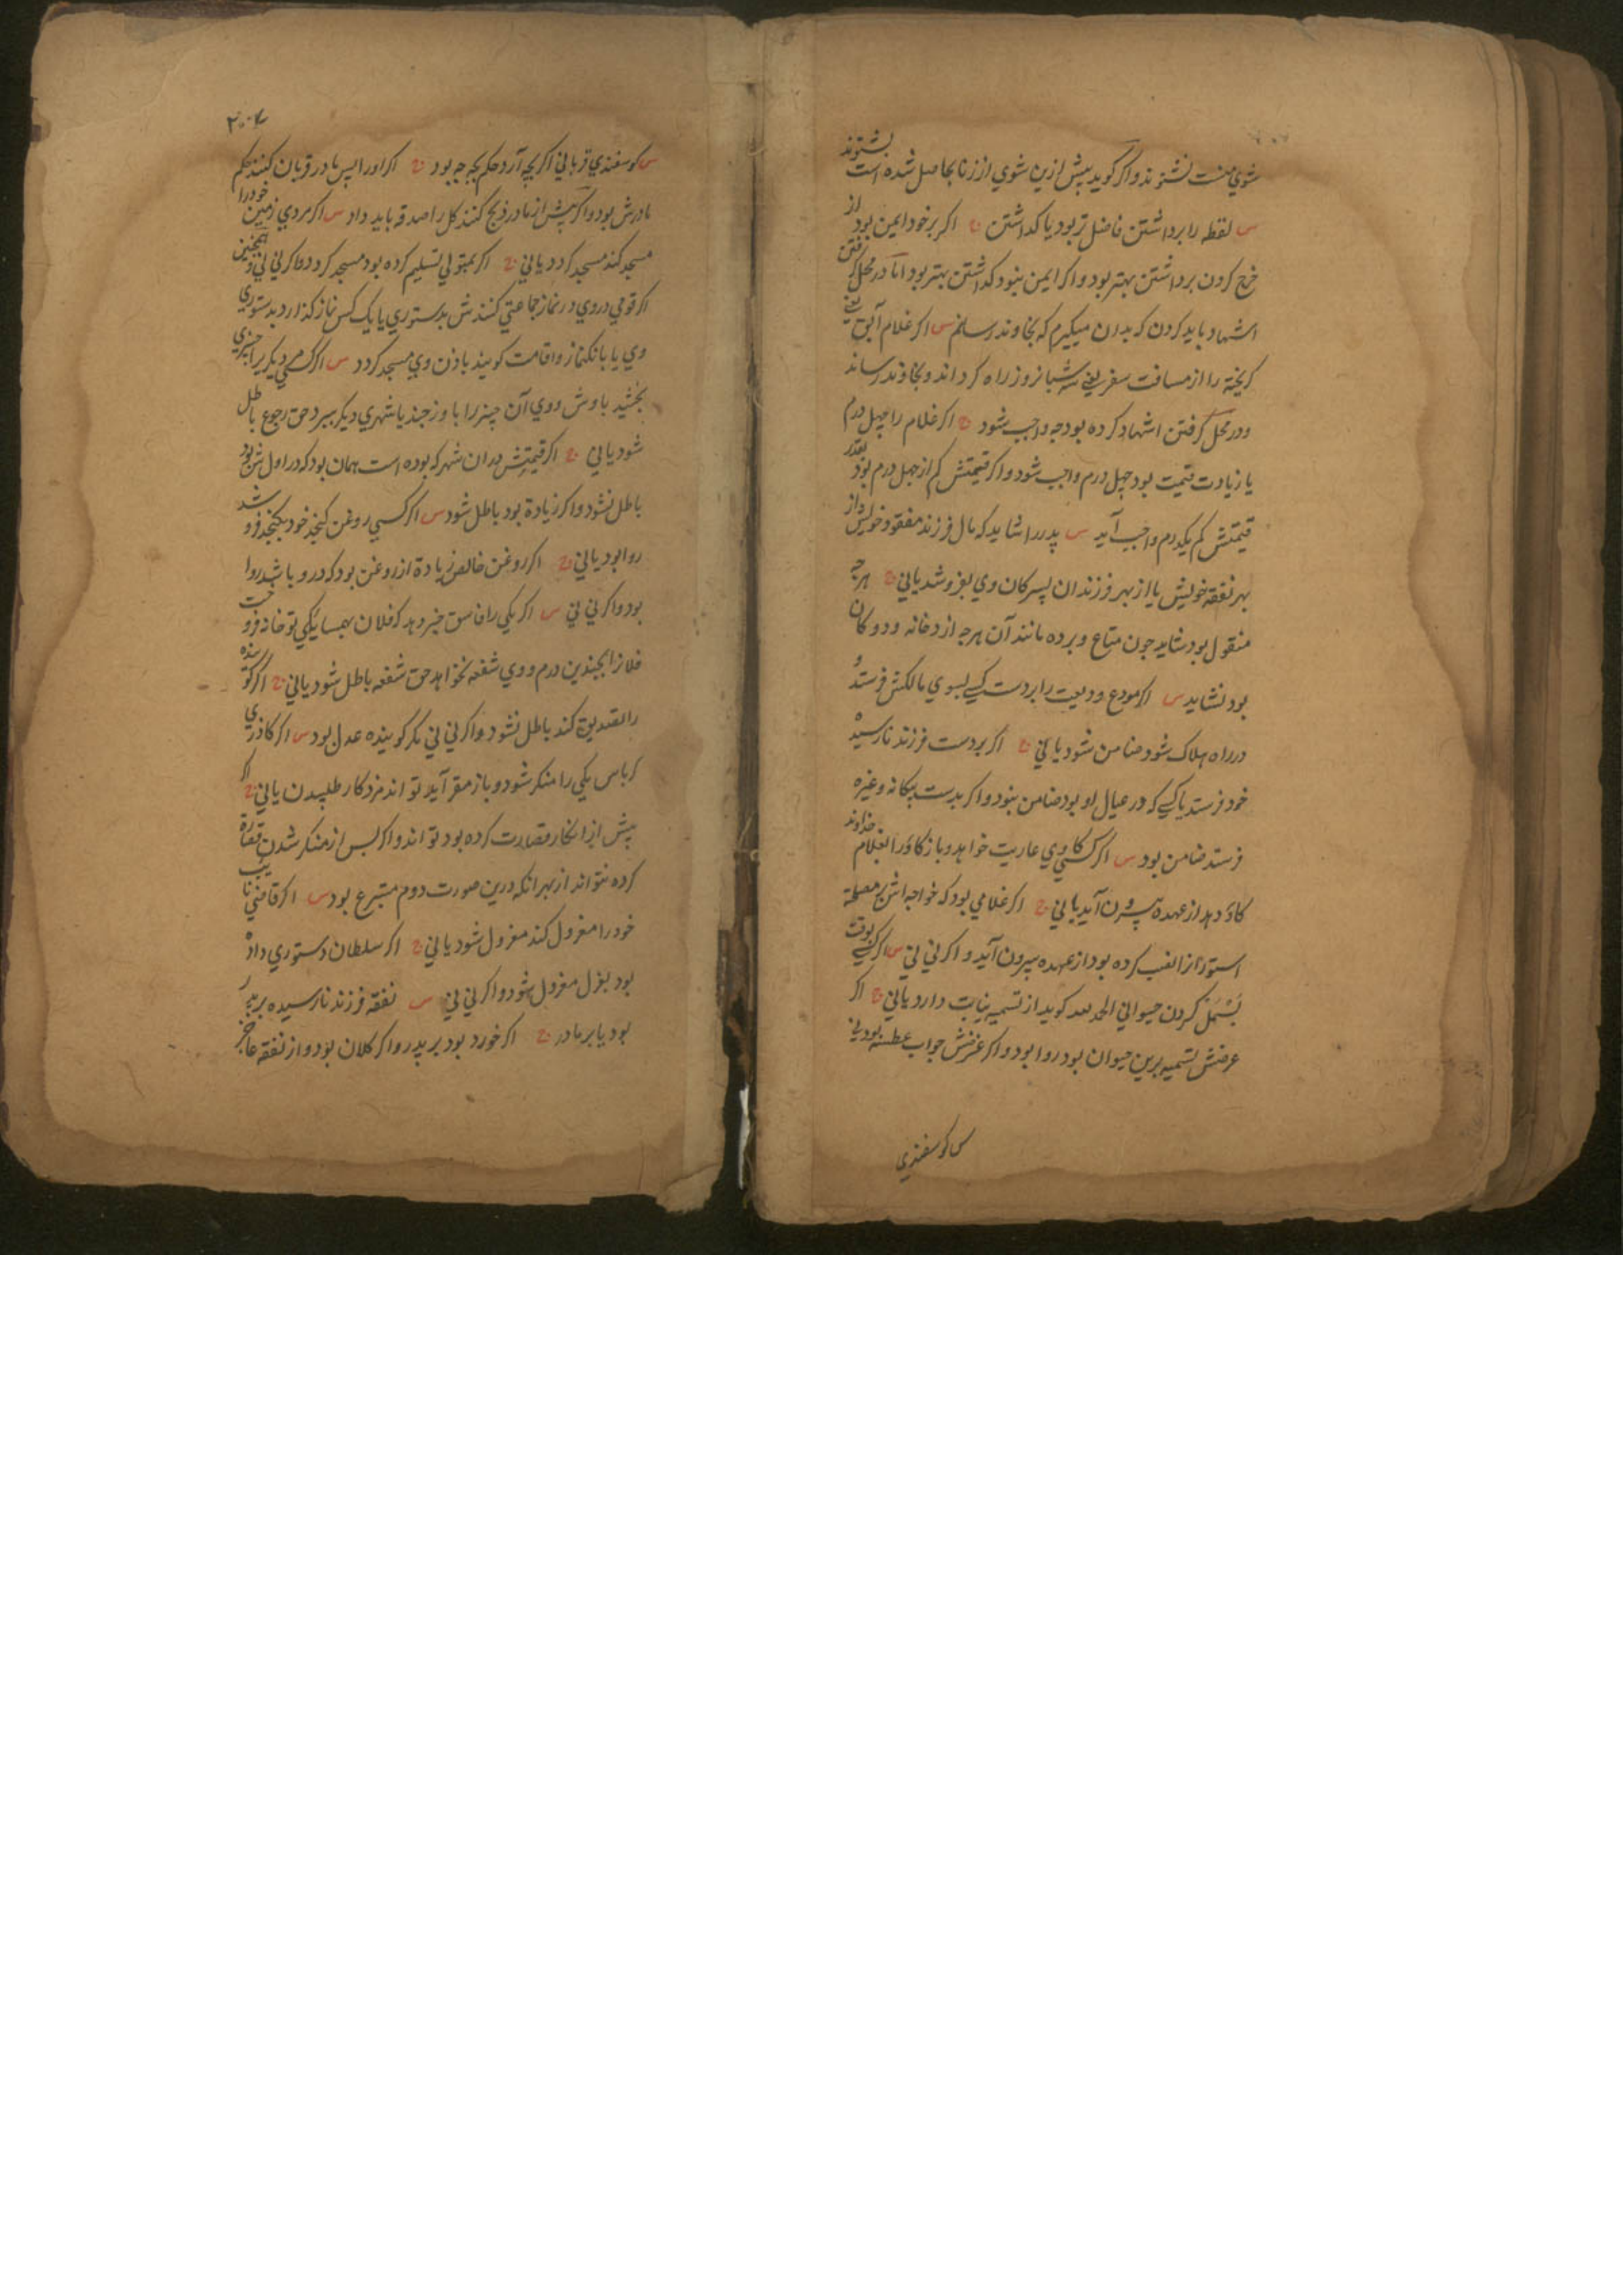 شوي منت نشنوند واكر كويد پيش ازين شوي از زنا بحاصل شده است بشنوند
س لقطه را برداشتن فاضل تر بود يا كذاشتن ج اكر بر خود ايمن بود از
خرج كردن برداشتن بهتر بود واكر ايمن نبود كذاشتن بهتر بود اما در محل كرفتن
اشهاد بايد كردن كه بدان ميكيرم كه بخاوند رسانم س اكر غلام آبق يعني
كريخته را از مسافت سفر يعني سه شبانروز راه كرداند و بخاوند رساند
ودر محل كرفتن اشهاد كرده بود چه واجب شود ج اكر غلام را چهل درم
يا زيادت قيمت بود چهل درم واجب شود واكر قيمتش كم از چهل درم بود بقدر
قيمتش كم يكدرم واجب آيد س پدر را شايد كه مال فرزند مفقود خويش از
بهر نفقه خويش يا از بهر فرزندان پسركان وي بفروشد يا ني ج هرچه
منقول بود شايد چون متاع و برده مانند آن هرچه از خانه و دوكان
بود نشايد س اكر مودع وديعت را بر دست كسي بسوي مالكش فرستد و
در راه هلاك شود ضامن شود يا ني ج اكر بردست فرزند نارسيده
خود فرستد يا كسي كه در عيال او بود ضامن نبود واكر بدست بيكانه وغيره
فرستد ضامن بود س اكر كسي كاوي عاريت خواهد و باز كاو را بغلام خداوند
كاو دهد از عهده بيرون آيد يا ني ج اكر غلامي بود كه خواجه اش بر مصلحت
استور نصب كرده بود از عهده بيرون آيد واكر ني ني س اكر كسي بوقت
بسمل كردن حيواني الحمد لله كويد از تسميه نيابت دارد يا ني ج اكر
غرضش تسميه برين حيوان بود روا بود واكر غرضش جواب عطسه بود ني
س كوسفندي
٢٠٤
س كوسفندي قرباني اكر بچه آرد حكم بچه چه بود ج اكر اورا پس مادر قربان كنند حكم
مادرش بود واكر پيش از مادر ذبح كنند كل را صدقه بايد داد س اكر مردي زمين خود را
مسجد كند مسجد كردد يا ني ج اكر بمتولي تسليم كرده بود مسجد كردد واكر ني ني و همچنين
اكر قومي در وي در نماز جماعتي كنندش بدستوري يا يك كس نماز كذارد بدستوري
وي يا بانكنماز واقامت كويند باذن وي مسجد كردد س اكر كسي ديكريرا چيزي
بخشيد باوش و وي آن چيز را باوزجند يا شهري ديكر ببرد حق رجوع باطل
شود يا ني ج اكر قيمتش بدان شهر كه بوده است همان بود كه در اول شهر بود
باطل نشود واكر زيادة بود باطل شود س اكر كسي روغن كنجد خود بكنجد فروشد
روا بود يا ني ج اكر روغن خالص زيادة از روغن بود كه درو باشد روا
بود واكر ني ني س اكر يكي را فاسق خبر دهد كه فلان همسايكي تو خانه فروخت
فلانرا بچندين درم و وي شفعه نخواهد حق شفعه باطل شود يا ني ج اكر كوينده
را تصديق كند باطل نشود واكر ني ني مكر كوينده عدل بود س اكر كاذري
كرباس يكي را منكر شود و باز مقر آيد تواند مزد كار طلبيدن يا ني ج اكر
پيش از انكار قصارت كرده بود تواند واكر پس از منكر شدن قصارة
كرده نتواند از بهر انكه درين صورت دوم متبرع بود س اكر قاضي نايب
خود را معزول كند معزول شود يا ني ج اكر سلطان دستوري داده
بود بعزل معزول شود واكر ني ني س نفقه فرزند نارسيده بر پدر
بود يا بر مادر ج اكر خورد بود بر پدر واكر كلان بود و از نفقه عاجز